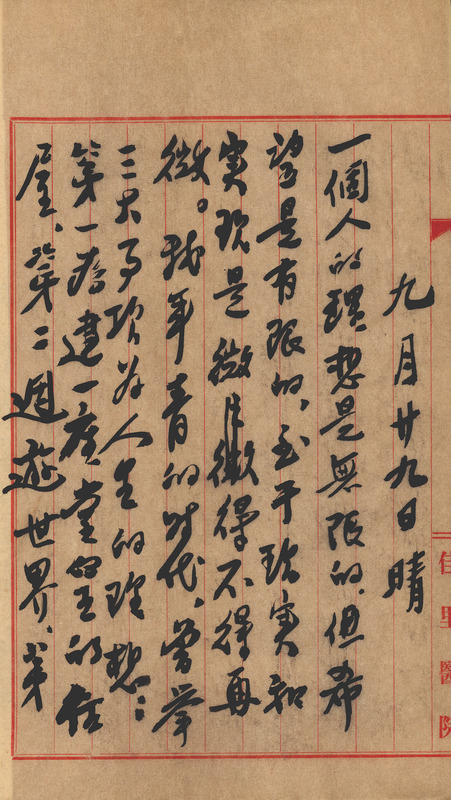 九月廿九日晴
一個人的理想是無限的、但希
望是有限的、至于現實和
實現是微微得不得再
微。我年青的时代、曾举
三大事項為人生的理想：
第一建一座堂皇的住
屋、第二週遊世界、第
佳里醫院